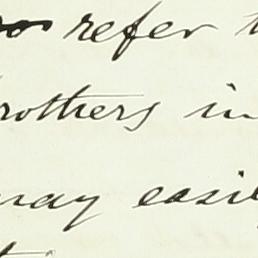 refer
rothers in
may easi